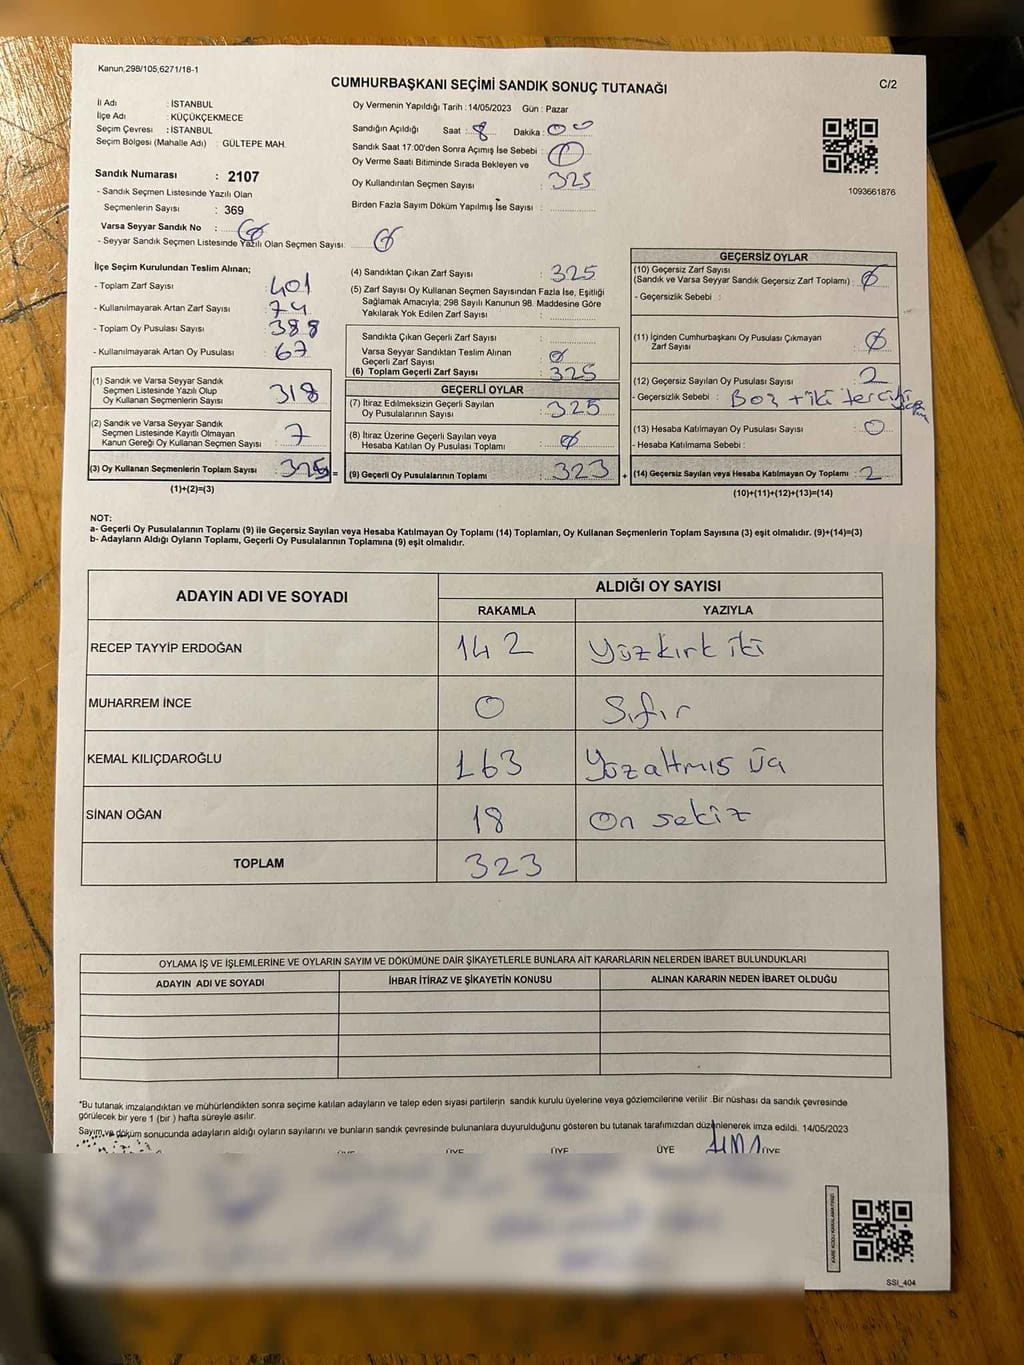 Kanun,298/105,6271/18-1
CUMHURBAŞKANI SEÇİMİ SANDIK SONUÇ TUTANAĞI
C/2
İl Adı : İSTANBUL
İlçe Adı : KÜÇÜKÇEKMECE
Seçim Çevresi : İSTANBUL
Seçim Bölgesi (Mahalle Adı) : GÜLTEPE MAH.
Oy Vermenin Yapıldığı Tarih : 14/05/2023 Gün : Pazar
Sandığın Açıldığı Saat : 8 Dakika : 00
Sandık Saat 17:00'den Sonra Açımış İse Sebebi :
Oy Verme Saati Bitiminde Sırada Bekleyen ve
Oy Kullandırılan Seçmen Sayısı : 325
Birden Fazla Sayım Döküm Yapılmış İse Sayısı :
1093661876
Sandık Numarası : 2107
- Sandık Seçmen Listesinde Yazılı Olan
Seçmenlerin Sayısı : 369
Varsa Seyyar Sandık No : Ø
- Seyyar Sandık Seçmen Listesinde Yazılı Olan Seçmen Sayısı: Ø
İlçe Seçim Kurulundan Teslim Alınan;
- Toplam Zarf Sayısı 401
- Kullanılmayarak Artan Zarf Sayısı 74
- Toplam Oy Pusulası Sayısı 388
- Kullanılmayarak Artan Oy Pusulası 67
(1) Sandık ve Varsa Seyyar Sandık
Seçmen Listesinde Yazılı Olup
Oy Kullanan Seçmenlerin Sayısı 318
(2) Sandık ve Varsa Seyyar Sandık
Seçmen Listesinde Kayıtlı Olmayan
Kanun Gereği Oy Kullanan Seçmen Sayısı 7
(3) Oy Kullanan Seçmenlerin Toplam Sayısı 325 =
(1)+(2)=(3)
(4) Sandıktan Çıkan Zarf Sayısı : 325
(5) Zarf Sayısı Oy Kullanan Seçmen Sayısından Fazla İse, Eşitliği
Sağlamak Amacıyla; 298 Sayılı Kanunun 98. Maddesine Göre
Yakılarak Yok Edilen Zarf Sayısı :
Sandıkta Çıkan Geçerli Zarf Sayısı :
Varsa Seyyar Sandıktan Teslim Alınan
Geçerli Zarf Sayısı : Ø
(6) Toplam Geçerli Zarf Sayısı : 325
GEÇERLİ OYLAR
(7) İtiraz Edilmeksizin Geçerli Sayılan
Oy Pusulalarının Sayısı : 325
(8) İtiraz Üzerine Geçerli Sayılan veya
Hesaba Katılan Oy Pusulası Toplamı : Ø
(9) Geçerli Oy Pusulalarının Toplamı : 323 +
GEÇERSİZ OYLAR
(10) Geçersiz Zarf Sayısı
(Sandık ve Varsa Seyyar Sandık Geçersiz Zarf Toplamı) : Ø
- Geçersizlik Sebebi :
(11) İçinden Cumhurbaşkanı Oy Pusulası Çıkmayan
Zarf Sayısı : Ø
(12) Geçersiz Sayılan Oy Pusulası Sayısı : 2
- Geçersizlik Sebebi : Boş + iki tercih
(13) Hesaba Katılmayan Oy Pusulası Sayısı : 0
- Hesaba Katılmama Sebebi :
(14) Geçersiz Sayılan veya Hesaba Katılmayan Oy Toplamı : 2
(10)+(11)+(12)+(13)=(14)
NOT:
a- Geçerli Oy Pusulalarının Toplamı (9) ile Geçersiz Sayılan veya Hesaba Katılmayan Oy Toplamı (14) Toplamları, Oy Kullanan Seçmenlerin Toplam Sayısına (3) eşit olmalıdır. (9)+(14)=(3)
b- Adayların Aldığı Oyların Toplamı, Geçerli Oy Pusulalarının Toplamına (9) eşit olmalıdır.
ADAYIN ADI VE SOYADI ALDIĞI OY SAYISI
RAKAMLA YAZIYLA
RECEP TAYYİP ERDOĞAN 142 Yüzkırk iki
MUHARREM İNCE 0 Sıfır
KEMAL KILIÇDAROĞLU 163 Yüzaltmış üç
SİNAN OĞAN 18 On sekiz
TOPLAM 323
OYLAMA İŞ VE İŞLEMLERİNE VE OYLARIN SAYIM VE DÖKÜMÜNE DAİR ŞİKAYETLERLE BUNLARA AİT KARARLARIN NELERDEN İBARET BULUNDUKLARI
ADAYIN ADI VE SOYADI İHBAR İTİRAZ VE ŞİKAYETİN KONUSU ALINAN KARARIN NEDEN İBARET OLDUĞU
*Bu tutanak imzalandıktan ve mühürlendikten sonra seçime katılan adayların ve talep eden siyasi partilerin sandık kurulu üyelerine veya gözlemcilerine verilir .Bir nüshası da sandık çevresinde
görülecek bir yere 1 (bir ) hafta süreyle asılır.
Sayım ve döküm sonucunda adayların aldığı oyların sayılarını ve bunların sandık çevresinde bulunanlara duyurulduğunu gösteren bu tutanak tarafımızdan düzenlenerek imza edildi. 14/05/2023
ÜYE ÜYE ÜYE ÜYE ÜYE
SSI_404